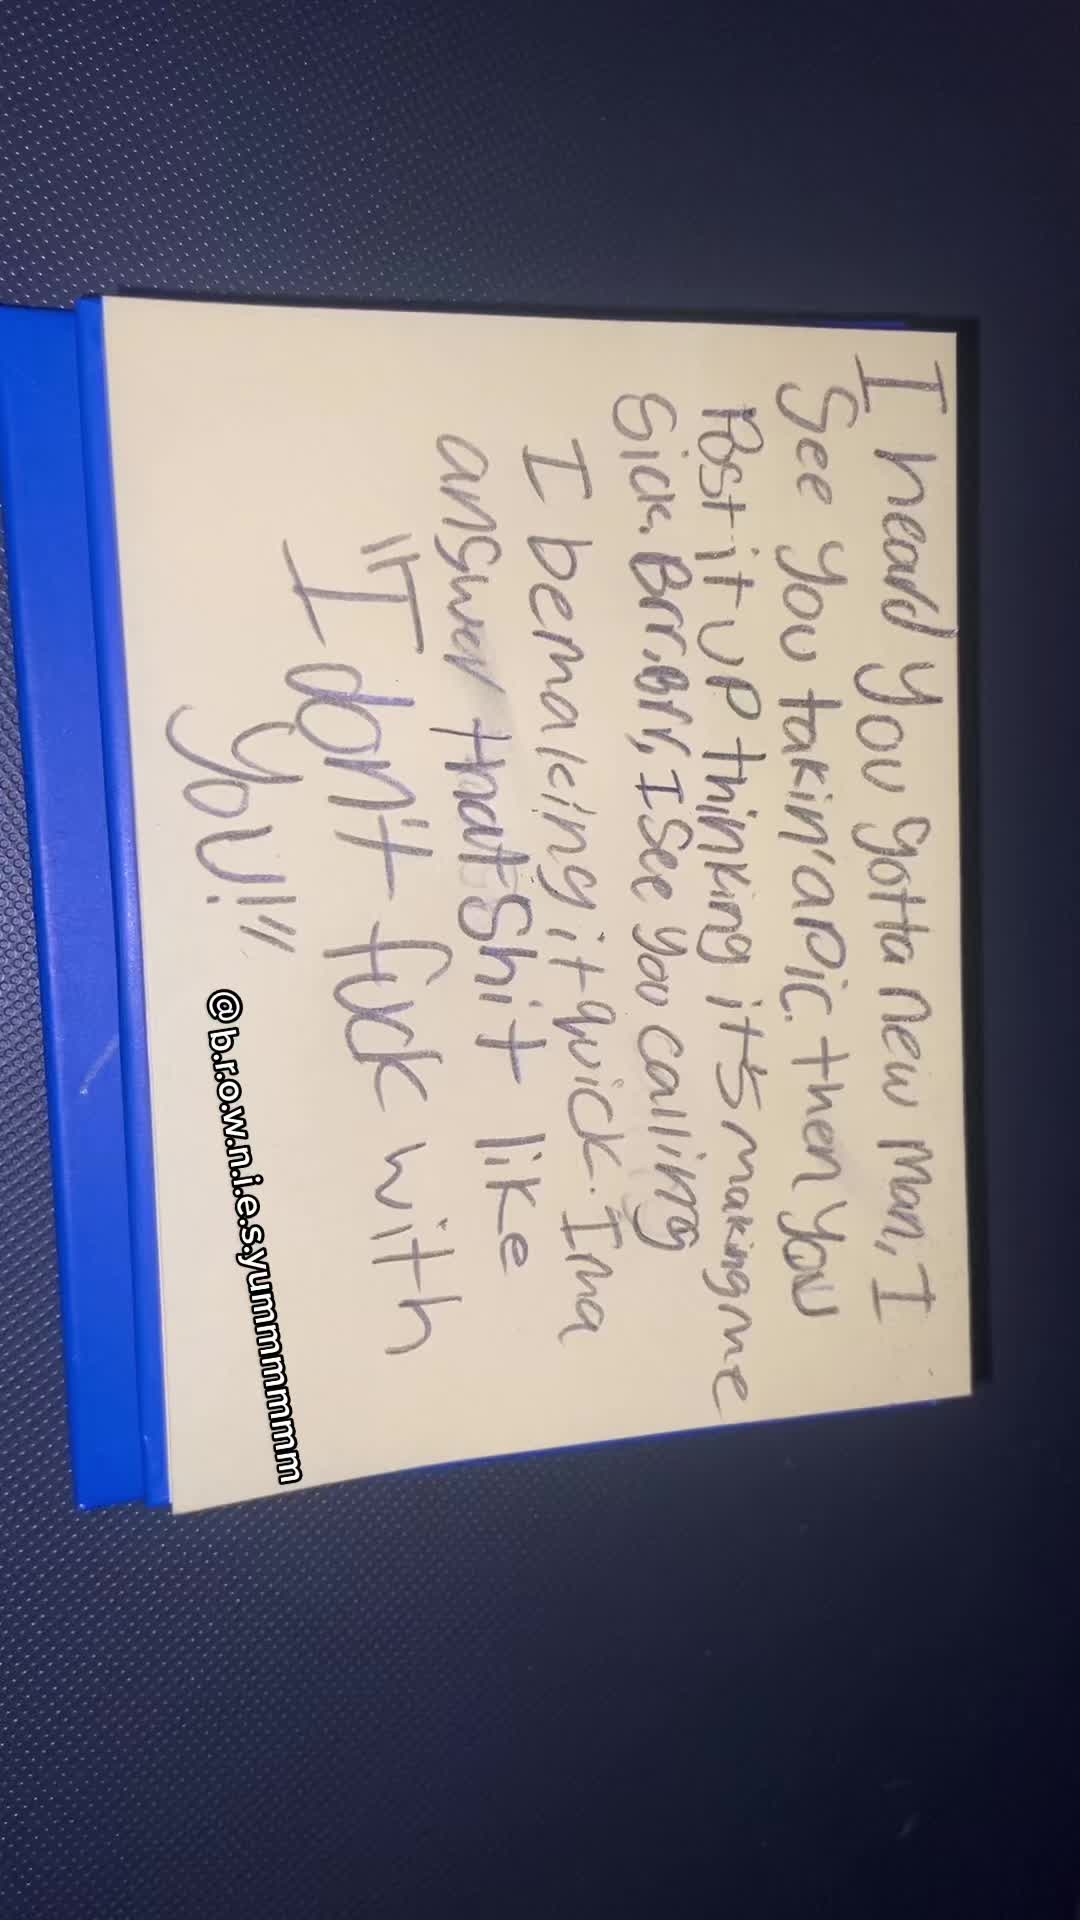 I heard you gotta new man, I
See you takin' a pic. then you
Post it up thinking it's making me
Sick. Brr, Brr, I see you calling
I be making it quick. Ima
answer that Shit like
"I
I don't fuck with
you!"
@b.r.o.w.n.i.e.s.yummmmmm